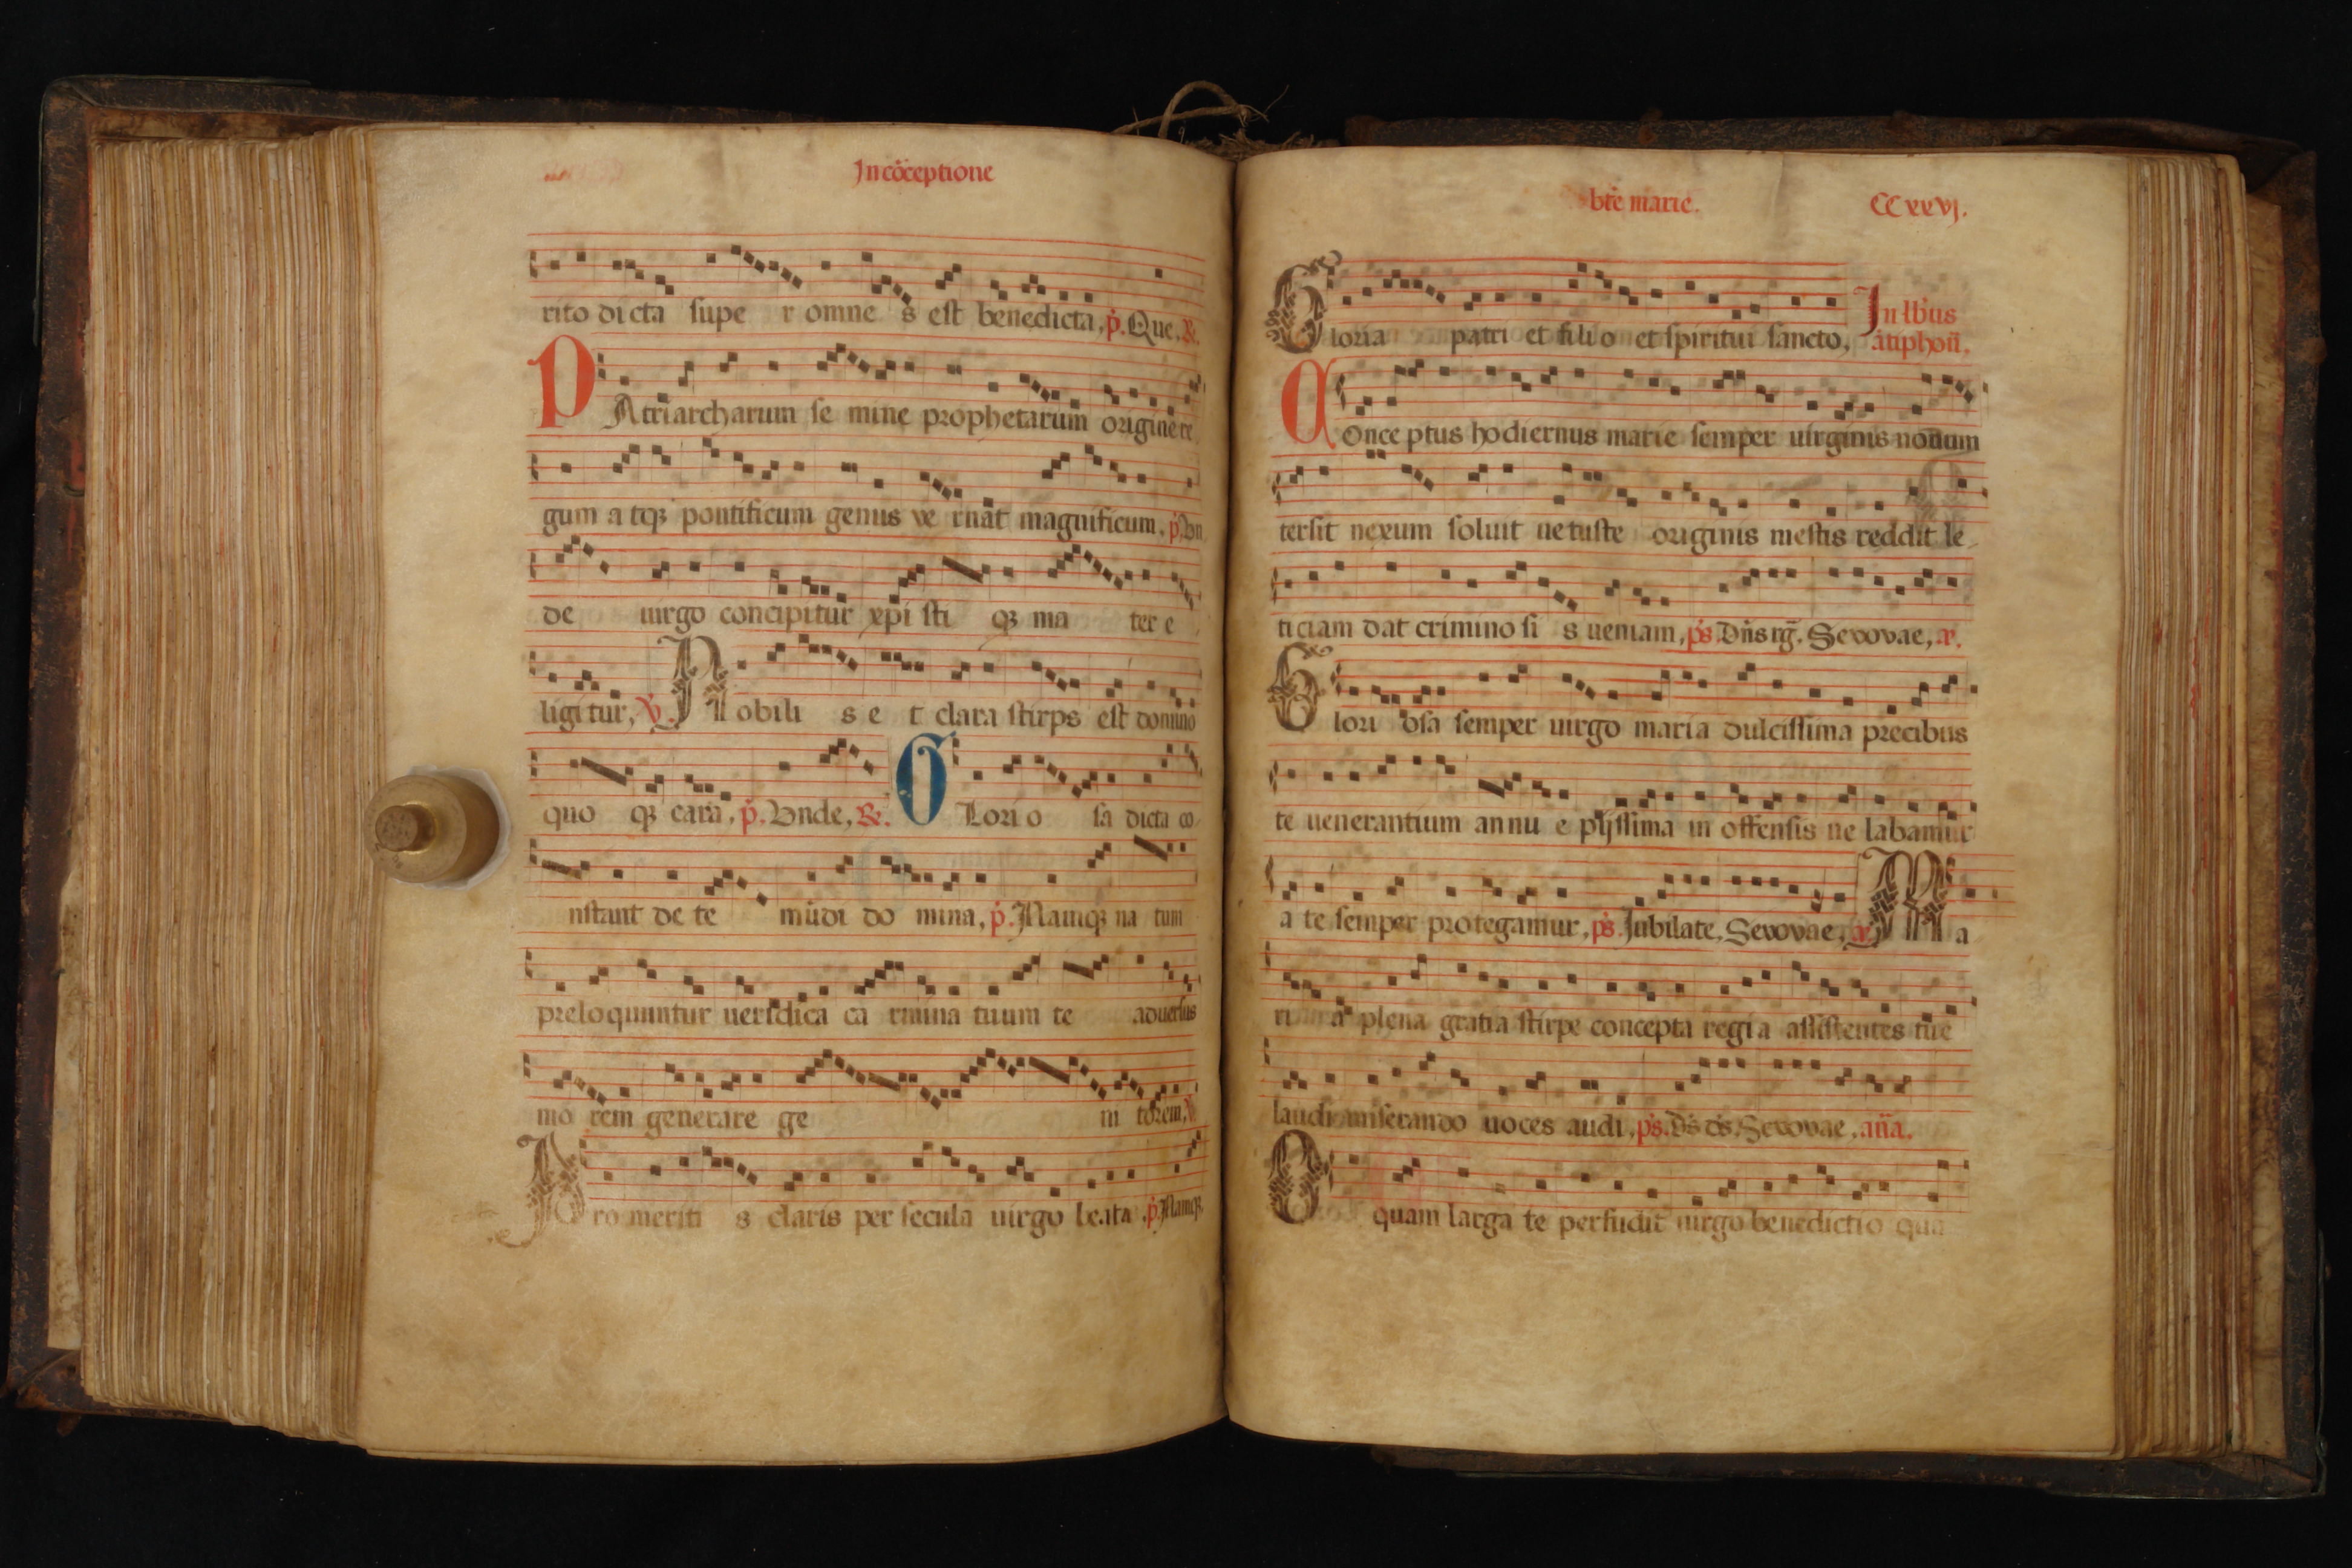 In cōceptione
rito dicta supe r omne s est benedicta, p̄. Que, &.
PAtriarcharum se mine prophetarum origine re
gum a tqꝫ pontificum genus ve rnat magnificum, p̄. Vn
de uirgo concipitur xpi sti qꝫ ma ter e
ligitur, V. Nobili s e t clara stirps est domino
quo qꝫ cara, p̄. Vnde, &. GLorio sa dicta co
nstant de te mūdi do mina, p̄. Namqꝫ na tum
preloquuntur ueridica ca rmina tuum te aduersus
mo rem generare ge ni torem, V.
Pro meriti s claris per secula uirgo beata, p̄. Namqꝫ
bt̄e marie. CCxxvj.
Gloria patri et filio et spiritui sancto, In lb'us
ātiphoñ.
COnce ptus hodiernus marie semper uirginis nouum
tersit nexum soluit uetuste originis mestis reddit le
ticiam dat crimino si s ueniam, p̄s. Dñs rg̃. Sevovae, ā.
Glori osa semper uirgo maria dulcissima precibus
te uenerantium annu e pijssima in offensis ne labamur
a te semper protegamur, p̄s. Jubilate, Sevovae, ā. Ma
ri a plena gratia stirpe concepta regia assistentes tue
laudi miserando uoces audi, p̄s. Ds ds, Sevovae, aña.
O quam larga te perfudit uirgo benedictio qua